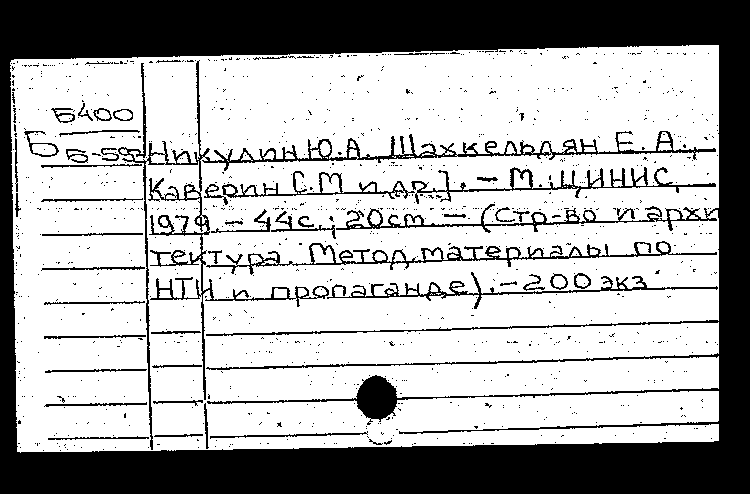 Б400
Б Б-592
Никулин Ю.А., Шахкельдян Е.А.,
Каверин С.М и др.]. – М.: ЦИНИС,
1979. – 44с.; 20см. – (Стр-во и архи
тектура. Метод. материалы по
НТИ и пропаганде). – 200 экз